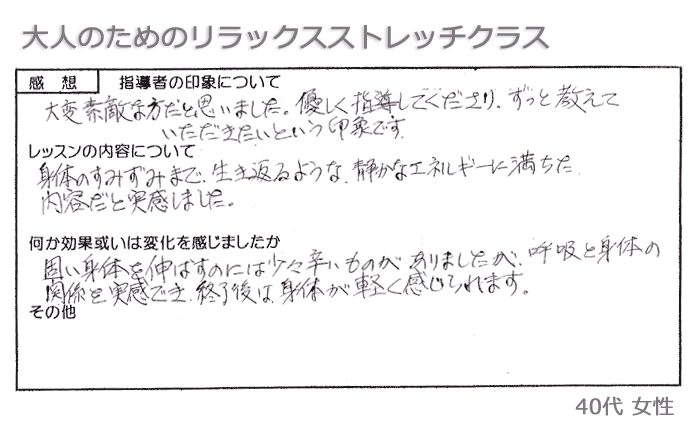 大人のためのリラックスストレッチクラス
感 想 指導者の印象について
大変素敵な方だと思いました。優しく指導してくださり、ずっと教えて
いただきたいという印象です
レッスンの内容について
身体のすみずみまで、生き返るような、静かなエネルギーに満ちた
内容だと実感しました。
何か効果或いは変化を感じましたか
固い身体を伸ばすのには少々辛いものがありましたが、呼吸と身体の
関係を実感でき、終了後は身体が軽く感じられます。
その他
40代 女性